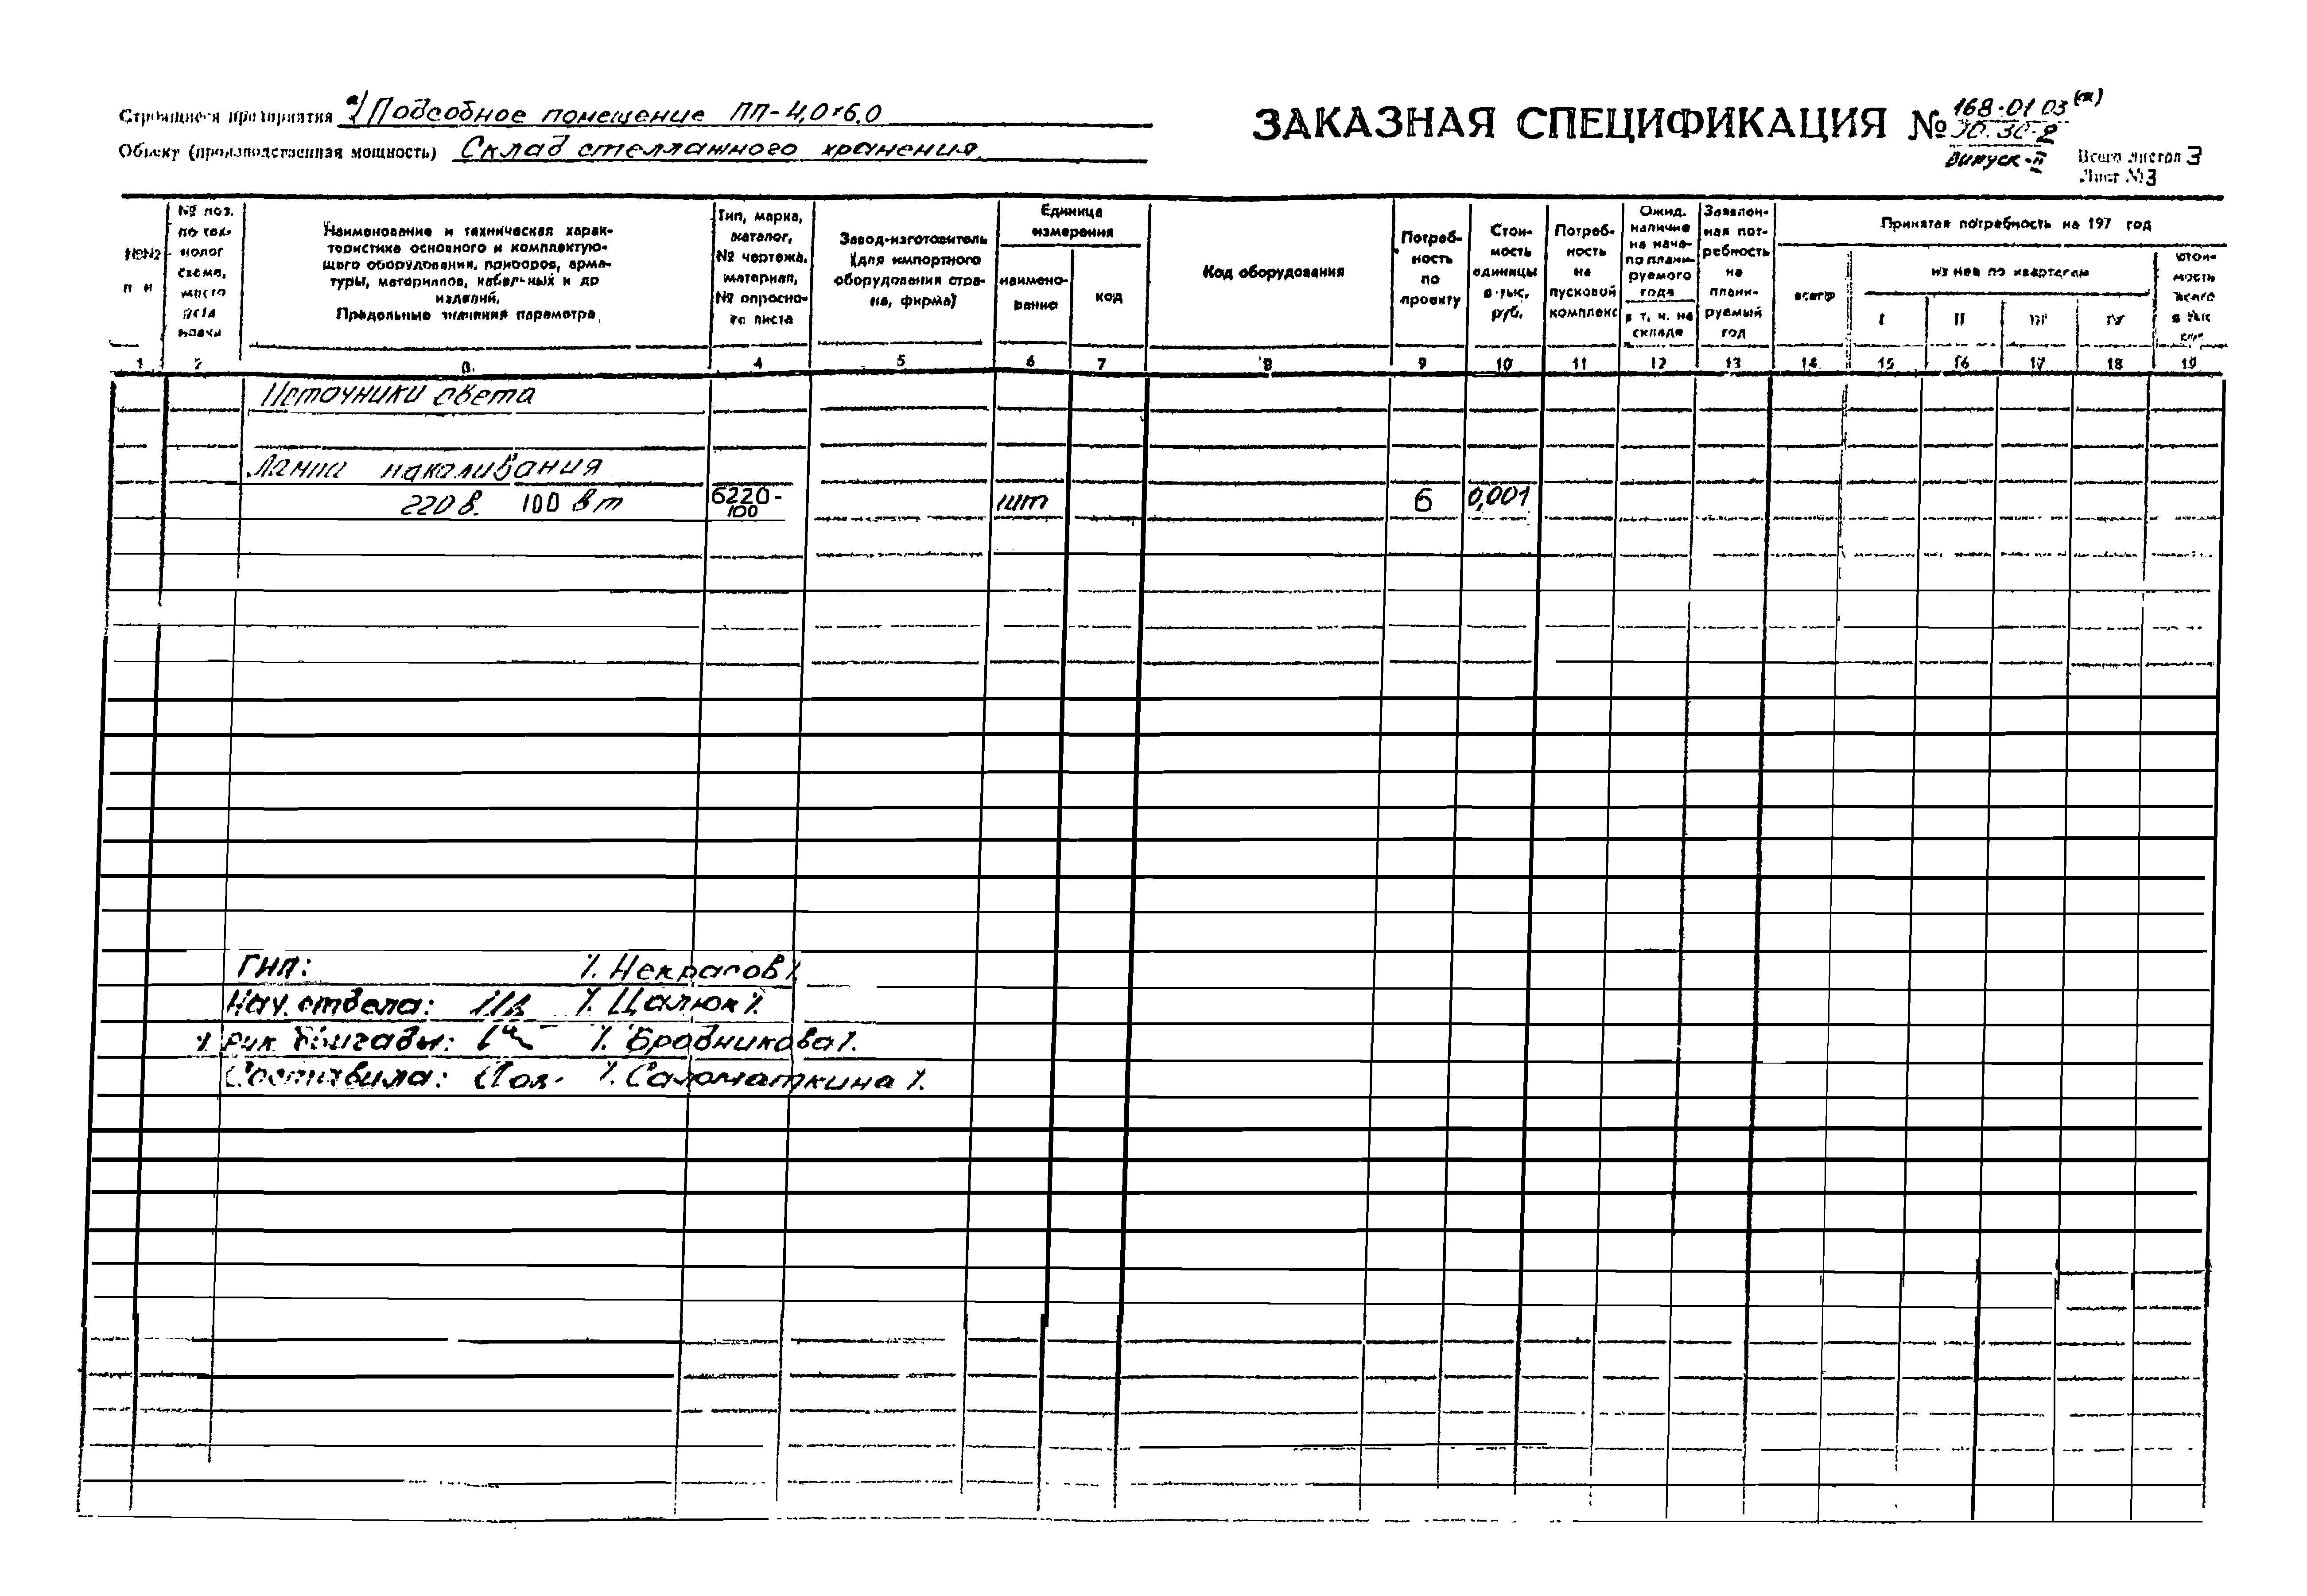 Строящиеся предприятия а) Подсобное помещение ПП-4,0×6,0
Объект (производственная мощность) Склад стеллажного хранения.
ЗАКАЗНАЯ СПЕЦИФИКАЦИЯ № 168-01 03
30.30-2
Выпуск-II
Всего листов 3
Лист №3
№№
п п
№ поз.
по тех-
нолог
схеме,
место
уста
новки
Наименование и техническая харак-
теристика основного и комплектую-
щего оборудования, приборов, арма-
туры, материалов, кабельных и др
изделий.
Предельные значения параметра
Тип, марка,
каталог,
№ чертежа,
материал,
№ опросно-
го листа
Завод-изготовитель
(для импортного
оборудования стра-
на, фирма)
Единица
измерения
наимено-
вание
код
Код оборудования
Потреб-
ность
по
проекту
Стои-
мость
единицы
в тыс.
руб.
Потреб-
ность
на
пусковой
комплекс
Ожид.
наличие
на нача-
ло плани-
руемого
года
в т. ч. на
складе
Заявлен-
ная пот-
ребность
на
плани-
руемый
год
Принятая потребность на 197 год
всего
из нее по кварталам
I II III IV
стои-
мость
всего
в тыс
руб
1 2 3 4 5 6 7 8 9 10 11 12 13 14 15 16 17 18 19
Источники света
Лампа накаливания
220 в. 100 вт Б220-100 шт 6 0,001
ГИП: /. Некрасов /.
Нач. отдела: /. Цалюк /.
Рук бригады: /. Бродникова /.
Составила: /. Саломаткина /.